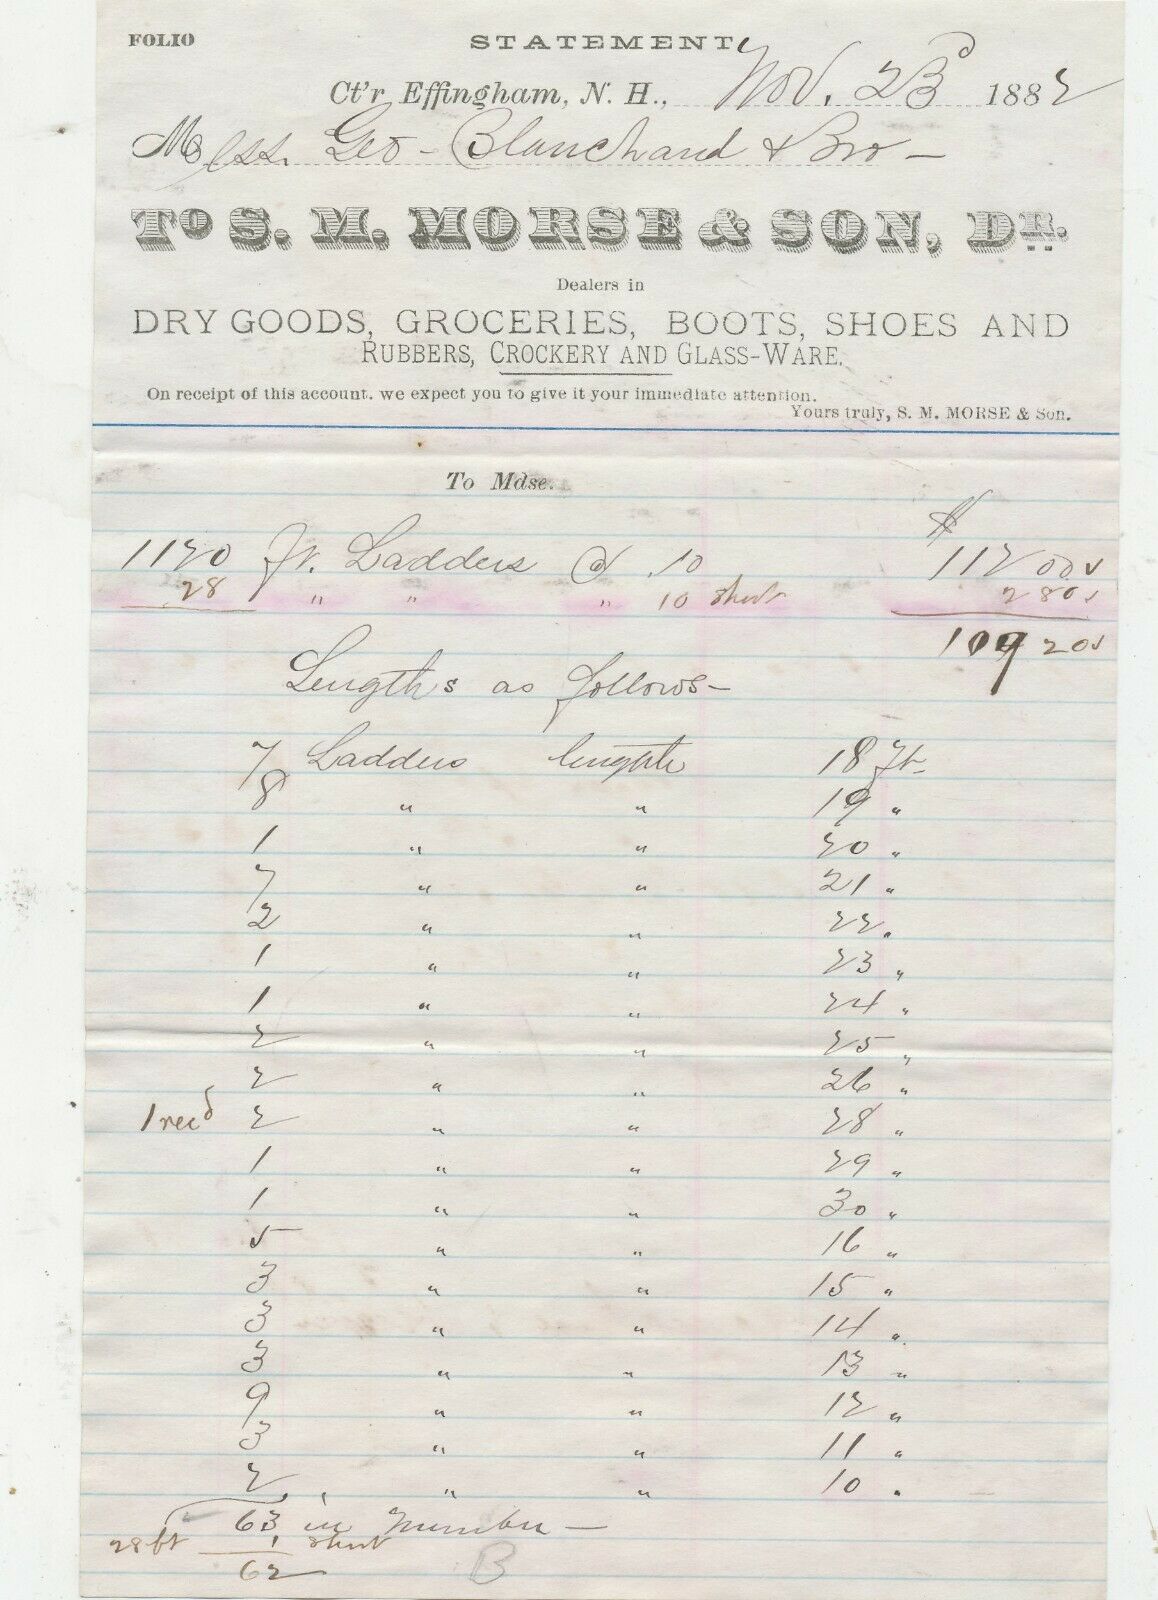 FOLIO STATEMENT
Ct'r Effingham, N. H., Nov. 23d 1882
Mess. Geo - Blanchard & Bro -
To S. M. MORSE & SON, DR.
Dealers in
DRY GOODS, GROCERIES, BOOTS, SHOES AND
RUBBERS, CROCKERY AND GLASS-WARE.
On receipt of this account. we expect you to give it your immediate attention.
Yours truly, S. M. MORSE & Son.
To Mdse.
$
1120 ft. Ladders @ .10 112 00 v
28 " " " 10 short 2 80 v
109 20 v
Lengths as follows -
7 Ladders length 18 ft.
8 " " 19 "
1 " " 20 "
7 " " 21 "
2 " " 22 "
1 " " 23 "
1 " " 24 "
2 " " 25 "
2 " " 26 "
1 recd 2 " " 28 "
1 " " 29 "
1 " " 30 "
5 " " 16 "
3 " " 15 "
3 " " 14 "
3 " " 13 "
9 " " 12 "
3 " " 11 "
2 " " 10 "
63 in number -
28 ft 1 short
62 B